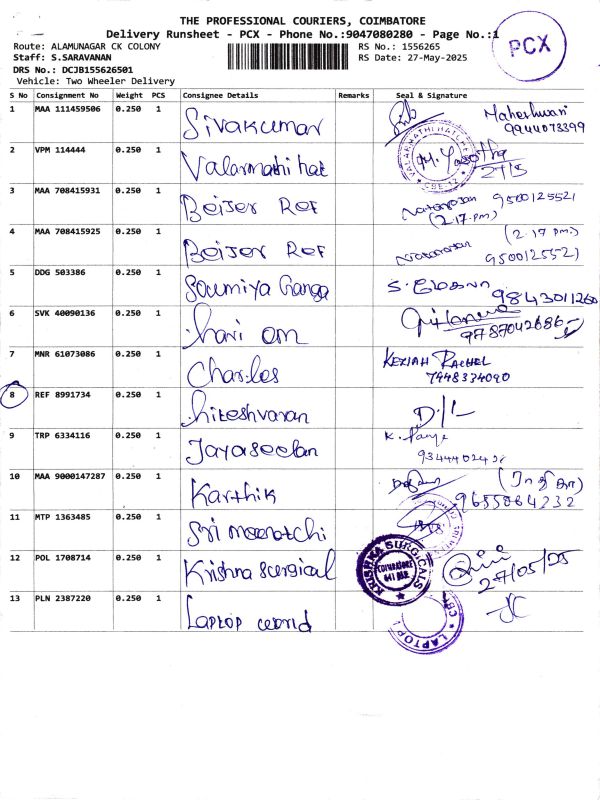 THE PROFESSIONAL COURIERS, COIMBATORE
Delivery Runsheet - PCX - Phone No.:9047080280 - Page No.:1
PCX
Route: ALAMUNAGAR CK COLONY
RS No.: 1556265
Staff: S.SARAVANAN
RS Date: 27-May-2025
DRS No.: DCJB155626501
Vehicle: Two Wheeler Delivery
S No Consignment No Weight PCS Consignee Details Remarks Seal & Signature
1 MAA 111459506 0.250 1 Sivakumar Maheshwari
9944073399
2 VPM 114444 0.250 1 Valarmathi hat
27/5
3 MAA 708415931 0.250 1 Beijer REF Natarajan 9500125521
(2.17 pm)
4 MAA 708415925 0.250 1 Beijer REF Natarajan (2.17 pm)
9500125521
5 DDG 503386 0.250 1 Soumiya Ganga
9843011260
6 SVK 40090136 0.250 1 hari om
9787042686
7 MNR 61073086 0.250 1 Charles KEZIAH RACHEL
7448334090
8 REF 8991734 0.250 1 hiteshvaran D/L
9 TRP 6334116 0.250 1 Jayaseelan
10 MAA 9000147287 0.250 1 Karthik
9655064232
11 MTP 1363485 0.250 1 Sri meenatchi
12 POL 1708714 0.250 1 Krishna surgical KRISHNA SURGICALS
COIMBATORE
27/05/25
13 PLN 2387220 0.250 1 Laptop world